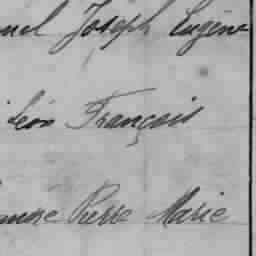 Joseph Eugène
Léon François
Pierre Marie